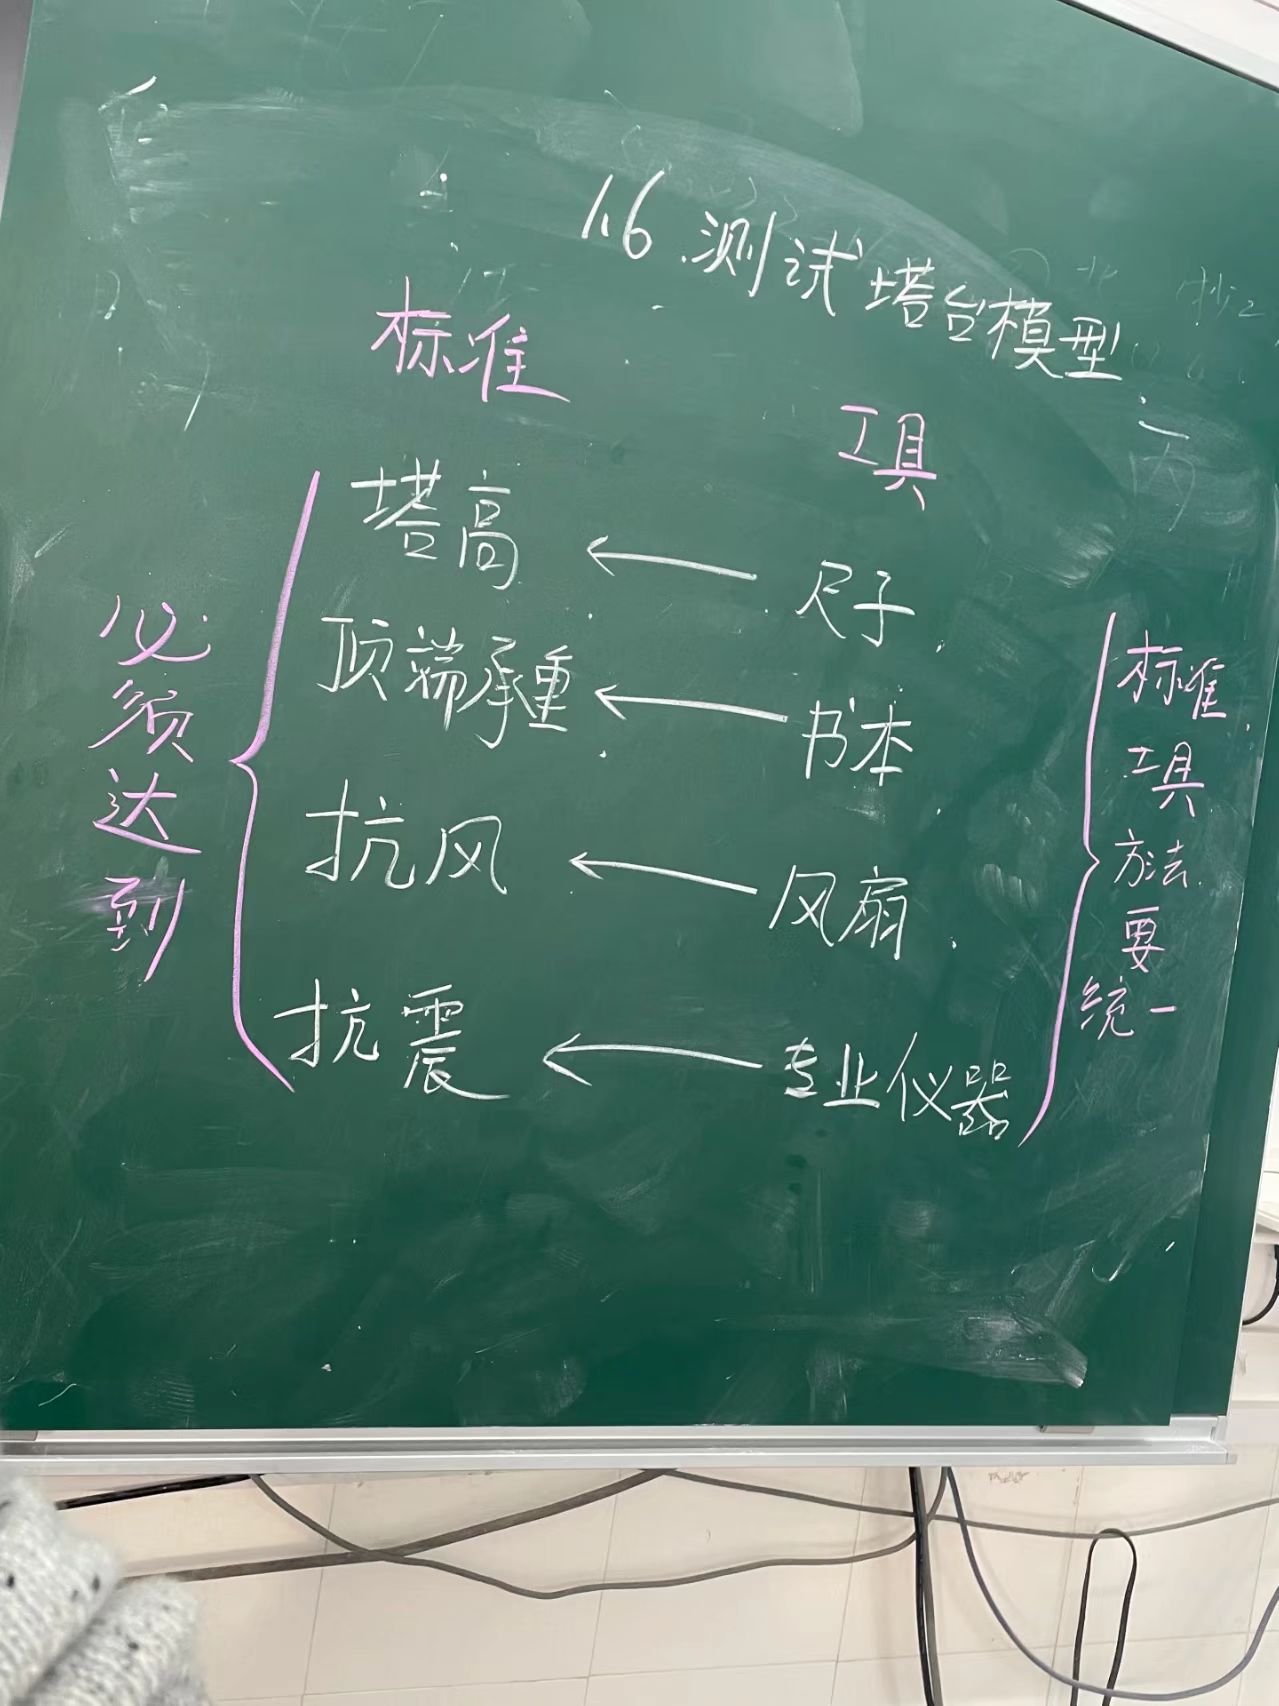 1.6 测试塔台模型
标准
工具
塔高 ← 尺子
顶端承重 ← 书本
抗风 ← 风扇
抗震 ← 专业仪器
必须达到
标准
工具
方法
要
统一